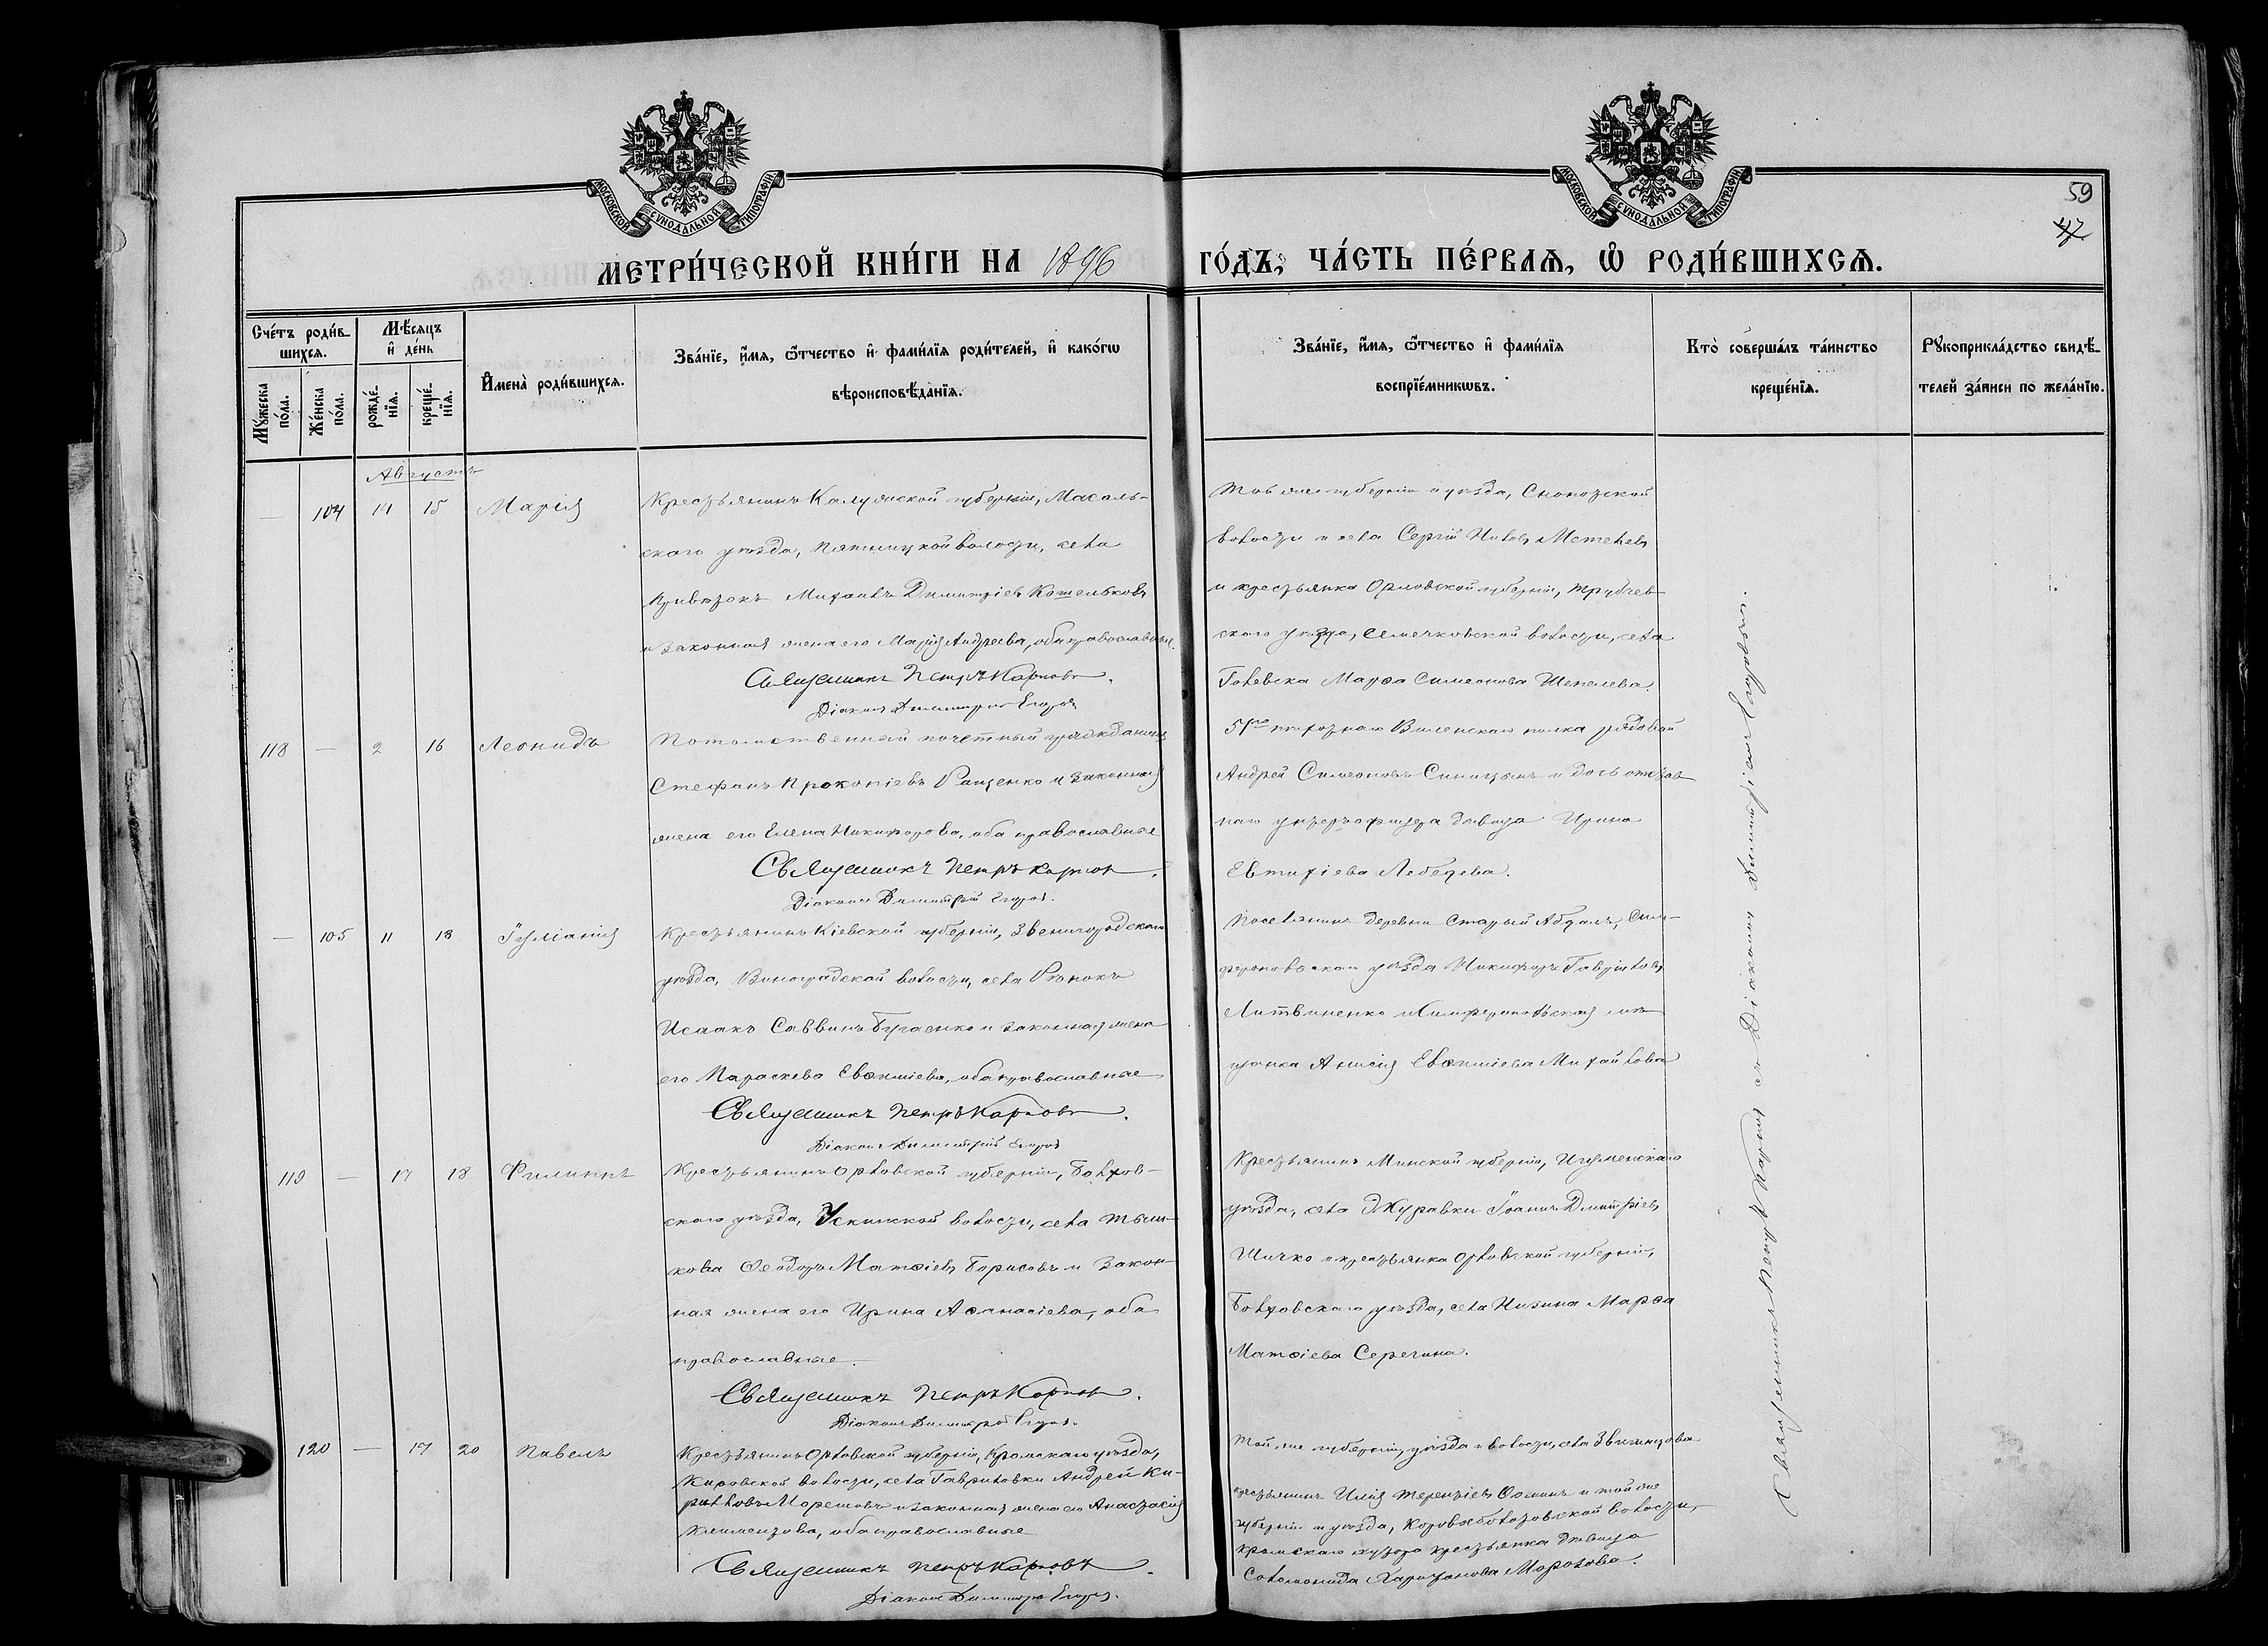 МОСКОВСКОЙ СѴНОДАЛЬНОЙ ТИПОГРАФІИ
МОСКОВСКОЙ СѴНОДАЛЬНОЙ ТИПОГРАФІИ
59
МЕТРИ́ЧЕСКОЙ КНИ́ГИ НА 1896 ГО́ДЪ, ЧА́СТЬ ПЕ́РВАѦ, Ѡ҆ РОДИ́ВШИХСѦ.
Сче́тъ роди́в-
шихсѧ.
Мѣ́сѧцъ
и҆ де́нь
Мꙋ́жеска по́ла.
Же́нска по́ла.
рожде́-
нїѧ.
креще́-
нїѧ.
И҆мена̀ роди́вшихсѧ.
Зва́нїе, и҆́мѧ, ѻ҆́тчество и҆ фами́лїѧ роди́телей, и҆ како́гѡ
вѣроисповѣ́данїѧ.
Зва́нїе, и҆́мѧ, ѻ҆́тчество и҆ фами́лїѧ
воспрїе́мникѡвъ.
Кто̀ соверша́лъ та́инство
креще́нїѧ.
Рꙋкоприкла́дство свидѣ́-
телей за́писи по жела́нїю.
Августъ
— 104 14 15 Марія
Крестьянинъ Калужской губерніи, Масаль-
скаго уѣзда, Пятницкой волости, села
Михаилъ Димитріевъ Кошельковъ
и законная жена его Марія Андреева, оба православные.
Священникъ Петръ Карповъ.
Діаконъ Димитрій Егоровъ
Той же губерніи и уѣзда,
волости и села Сергій
и крестьянка Орловской губерніи, Трубчев-
скаго уѣзда, Семячковской волости, села
Марѳа Симеонова Шепелева.
118 — 2 16 Леонидъ
Потомственный почетный гражданинъ
Стефанъ Прокопіевъ Ращенко и законная
жена его Елена Никифорова, оба православные
Священникъ Петръ Карповъ.
Діаконъ Димитрій Егоровъ.
51го пѣхотнаго Виленскаго полка рядовой
Андрей Симеоновъ Синицынъ и дочь отстав-
наго унтеръ-офицера дѣвица Ирина
Евтихіева Лебедева.
— 105 11 18 Іуліанія
Крестьянинъ Кіевской губерніи, Звенигородскаго
уѣзда, Виноградской волости, села
Исаакъ Саввинъ Бугаенко и законная жена
его Параскева Евѳиміева, оба православные
Священникъ Петръ Карповъ.
Діаконъ Димитрій Егоровъ
Поселянинъ деревни Старый Абдалъ, Сим-
феропольскаго уѣзда Никифоръ Гавриловъ
Литвиненко и Симферопольская мѣ-
щанка Анисія Евѳиміева Михайлова
119 — 17 18 Филиппъ
Крестьянинъ Орловской губерніи, Болхов-
скаго уѣзда, волости, села
Ѳеодоръ Матѳіевъ Борисовъ и закон-
ная жена его Ирина Аѳанасіева, оба
православные.
Священникъ Петръ Карповъ.
Діаконъ Димитрій Егоровъ.
Крестьянинъ Минской губерніи, Игуменскаго
уѣзда, села Журавки Іоаннъ Димитріевъ
Шичко и крестьянка Орловской губерніи,
Болховскаго уѣзда, села Низина Марѳа
Матѳіева Серегина.
120 — 17 20 Павелъ
Крестьянинъ Орловской губерніи, Кромскаго уѣзда,
волости, села Гавриловки Андрей Ки-
рилловъ и законная жена его Анастасія
Климентова, оба православные
Священникъ Петръ Карповъ.
Діаконъ Димитрій Егоровъ.
Той же губерніи, уѣзда и волости, села
крестьянинъ Илія Терентіевъ и той же
губерніи и уѣзда, волости,
Кромскаго хутора крестьянка дѣвица
Соломонида Морозова.
Священникъ Петръ Карповъ съ Діакономъ Димитріемъ Егоровымъ.